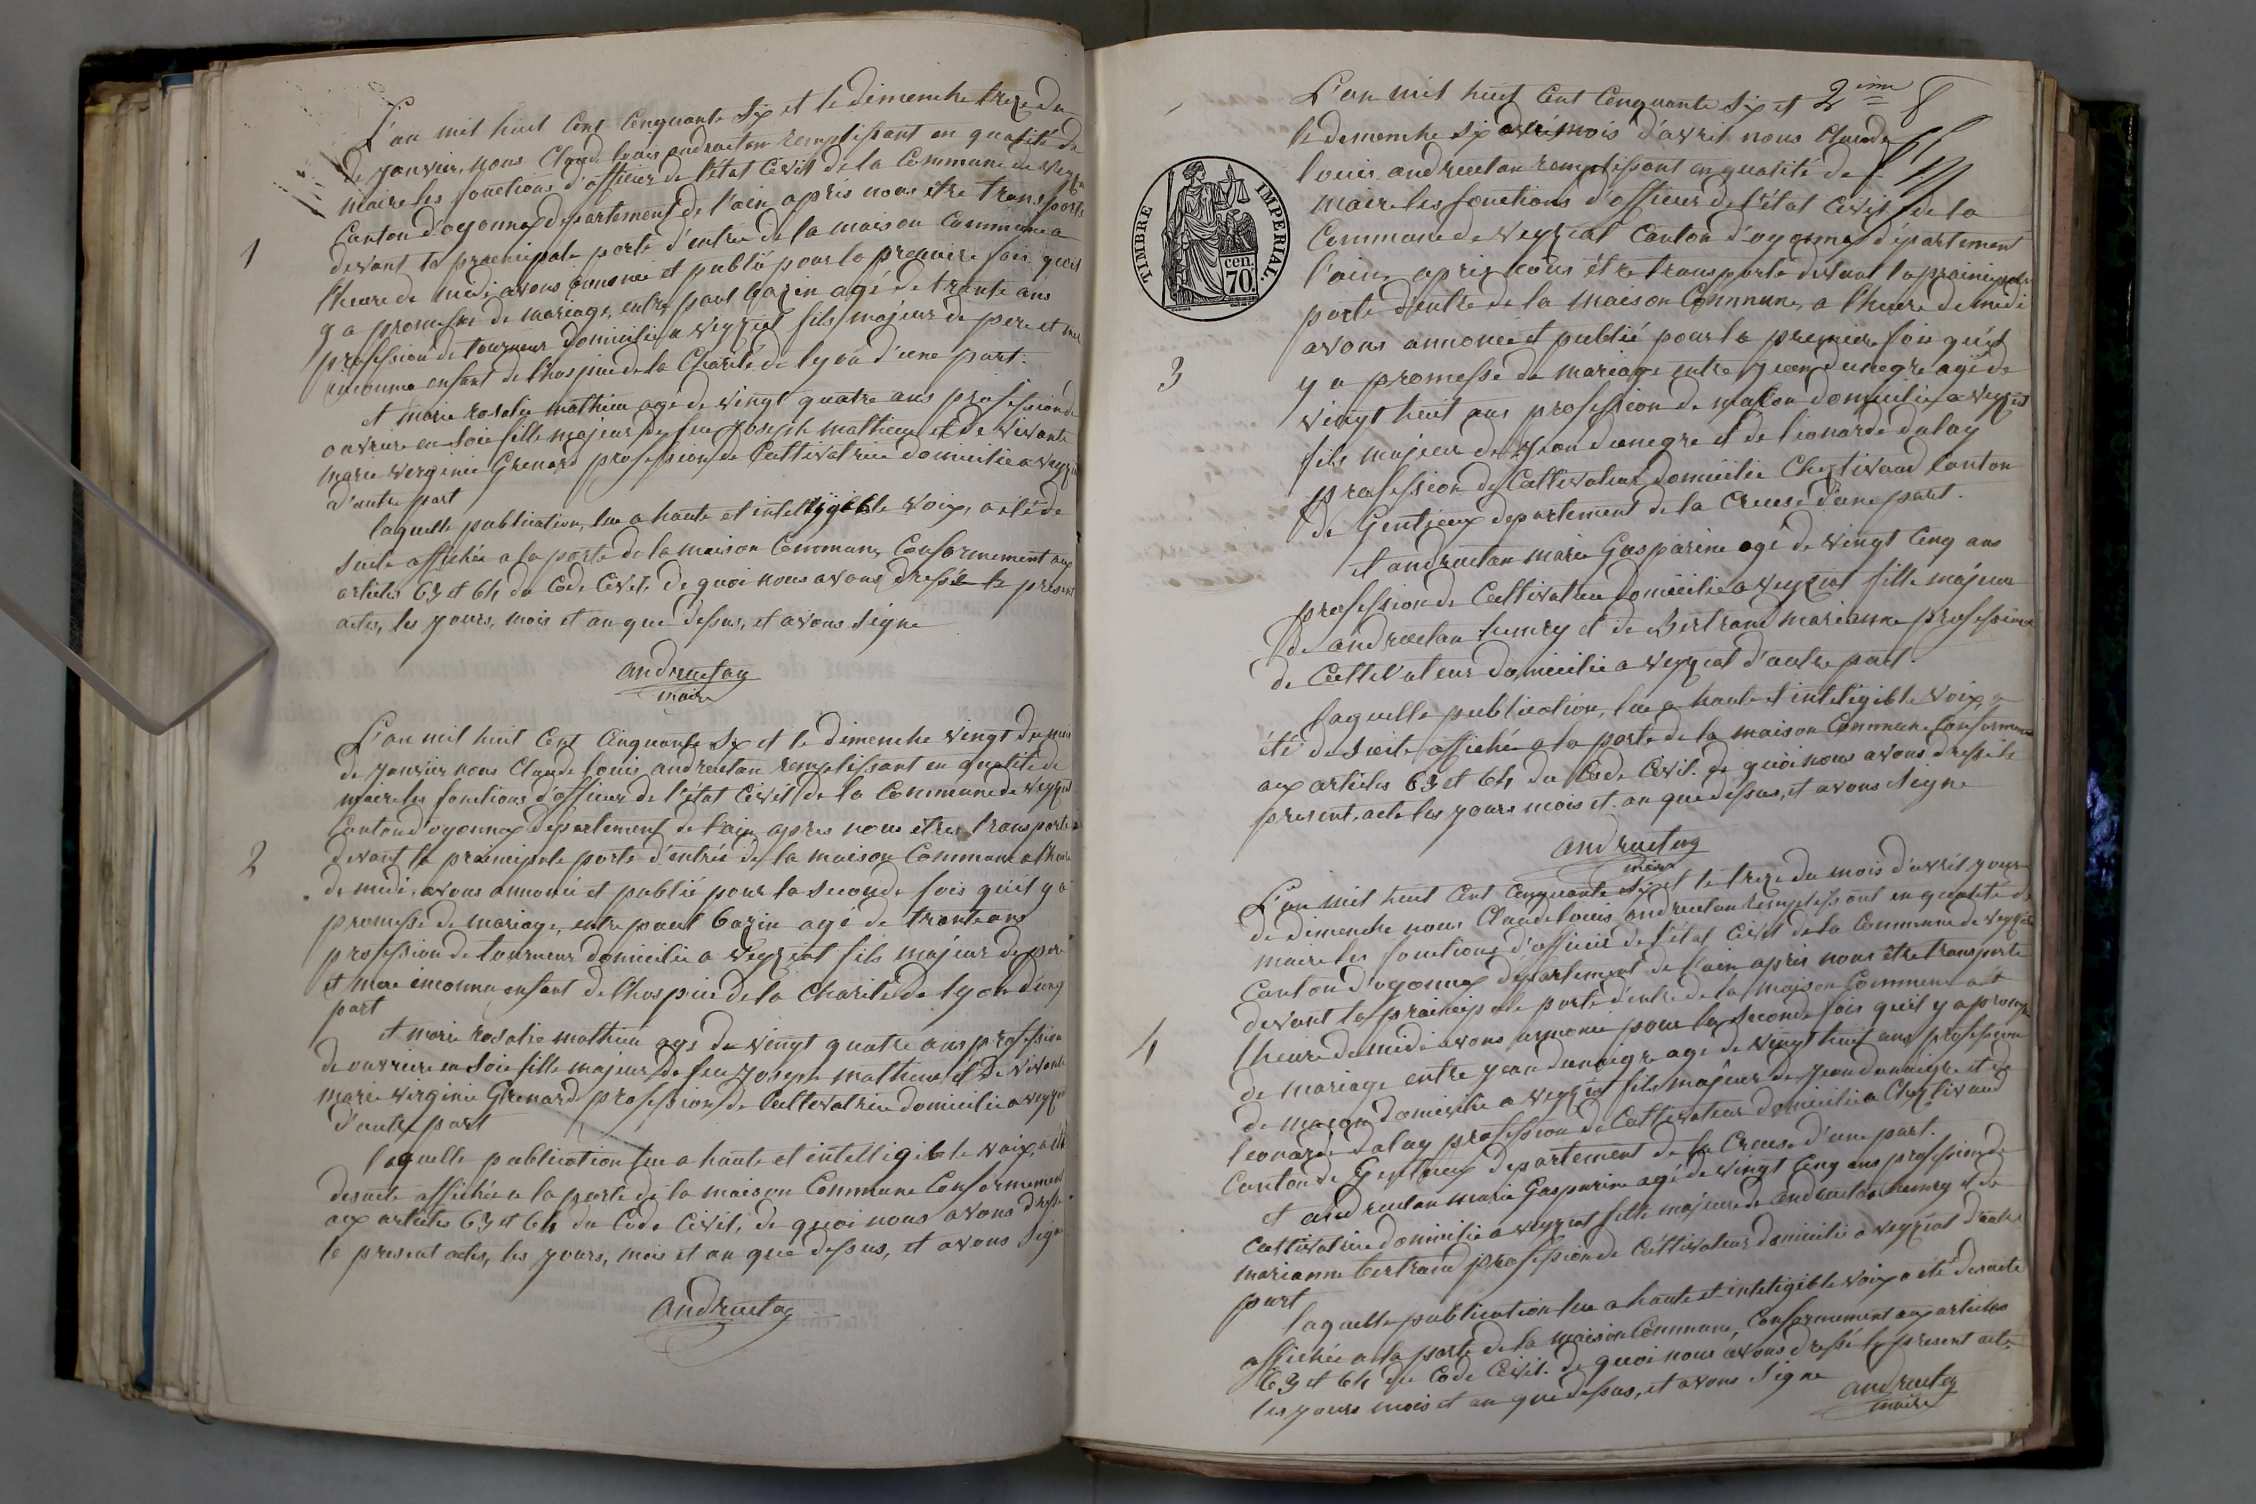 L'an mil huit Cent Cenquante Six et le dimenche treze du
de janvier, nous Claude louis andruetan remplissant en qualité de
maire les fonctions d'officier de l'état Civil de la Commune de Veyziat
Canton d'oyonnax departement de l'ain, apres nous être transporte
devant la praincipale porte d'entrée de la maison Commune a
1
l'heure de midi avons annonce et publié pour la premiere fois qu'il
y a promesse de mariage, entre paul bazin agé de trante ans
profession de tourneur domicilié a veyziat fils majeur de pere et mere
inconnu enfant de l'hospice de la Charité de lyon d'une part.
et marie rosalie mathieu agé de vingt quatre ans profession de
ouvriere en soie fille majeur de feu Joseph mathieu et de vivante
marie verginie Grenard profession de Cultivatrice domicilie a veyziat
d'autre part
laquelle publication, lue a haute et intelligible voix, a été de
suite affichée a la porte de la maison Commune, Conformement aux
articles 63 et 64 du Code Civil, de quoi nous avons dressé le present
actes, les jours, mois et an que dessus, et avons signe
andruetan
maire
L'an mil huit Cent Cinquante Six et le dimenche vingt du mois
de janvier nous Claude louis andruetan remplissant en qualité de
maire les fonctions d'officier de l'état Civil de la Commune de veyziat
Canton d'oyonnax departement de l'ain apres nous êtres transporte
2
devant la prainipale porte d'entrée de la maison Commune a l'heure
de midi, avons annoncé et publié pour la seconde fois qu'il y a
promesse de mariage, entre paul bazin agé de trante ans
profession de tourneur domicilie a Veyziat fils majeur de pere
et mere inconnu enfant de l'hospice de la Charité de lyon d'une
part
et marie rosalie mathieu agé de vingt quatre ans profession
de ouvriere en soie fille majeur de feu Joseph mathieu et de vivante
marie virginie Grenard profession de Cultivatrice domicilie a veyziat
d'autre part
laquelle publication lue a haute et intelligible voix, a été
desuite affichée a la porte de la maison Commune Conformement
aux articles 63 et 64 du Code Civil, de quoi nous avons dressé
le present actes, les jours, mois et an que dessus, et avons signe
andruetan
2ime 8
L'an mil huit Cent Cenquante Six et
le demenche six du mois d'avril nous Claude
louis andruetan remplissant en qualité de
maire les fonctions d'officier de l'état Civil de la
TIMBRE IMPERIAL.
cen. 70.
Commune de Veyziat Canton d'oyonnax département
l'ain, apris nous être transporte devant la prainipale
porte d'entre de la maison Commune, a l'heure de midi
avons annonce et publié pour la premier fois qu'il
3
y a promesse de mariage entre jean dunegre agé de
vingt huit ans profession de maçon domicilie a veyziat
fils majeur de jean dunegre et de leonarde dalay
profession de Cultivateur, domicilie Cheztivaud Canton
de Gentjeux departement de la Creuse d'une part.
et andruetan marie Gasparine agé de vingt Cenq ans
profession de Cultivatrice domicilie a veyziat fille majeur
de andruetan henry et de Bertrand marianne profession
de Cultivateur domicilie a veyziat d'autre part.
laquelle publication, lue a haute et inteligible voix a
été de suite affichée a la porte de la maison Commune Conformement
aux articles 63 et 64 du Code Civil. de quoi nous avons dressé le
present, acte les jours mois et an que dessus, et avons signe
andruetan
maire
L'an mil huit Cent Cenquante Six et le treze du mois d'avril jour
de dimenche nous Claude louis andruetan remplissant en qualité de
maire les fonctions d'officier de l'état Civil de la Commune de veyziat
Canton d'oyonnax departement de l'ain apres nous être transporte
devant la prainipale porte d'entre de la maison Commune a
4
l'heure de midi avons annonce pour la seconde fois qu'il y a promesse
de mariage entre jean dunaigre age de vingt huit ans profession
de maçon domicilie a veyziat fils majeur de jean dunaigre et de
leonarde dalay profession de Cultivateur domicilie a Cheztivaud
Canton de Gentieux departement de la Creuse d'une part.
et andruetan marie Gasparine agé de vingt Cenq ans profession de
Cultivatrice domicilie a veyziat fille majeure de andruetan henry et de
marianne bertrand profession de Cultivateur domicilie a veyziat d'autre
part
laquelle publication lue a haute et inteligible voix a été desuite
affichée a la porte de la maison Commune, Conformement aux articles
63 et 64 du Code Civil. de quoi nous avons dressé le present acte
les jours mois et an que dessus, et avons signe
andruetan
maire